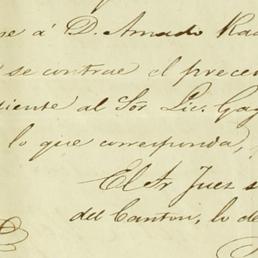 á D. Amado
se contrae el prece
diente al Sor Lic. Gag
lo que corresponda,
El Sr Juez s
del Canton, lo de